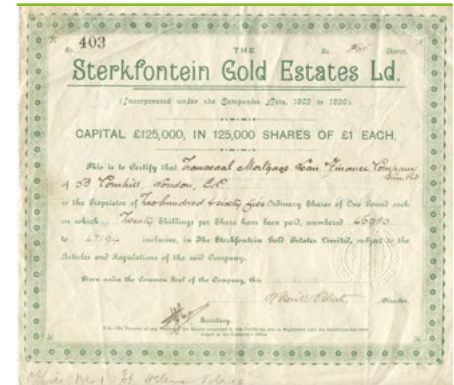 No. 403 THE No. Shares.
Sterkfontein Gold Estates Ld.
(Incorporated under the Companies Acts, 1862 to 1890).
CAPITAL £125,000, IN 125,000 SHARES OF £1 EACH.
This is to Certify that Transvaal Mortgage Loan & Finance Company Limited
of 53 Cornhill, London, E.C.
is the Proprietor of Two hundred Ordinary Shares of One Pound each
on which Twenty Shillings per Share have been paid, numbered
to 47194 inclusive, in The Sterkfontein Gold Estates Limited, subject to the
Articles and Regulations of the said Company.
Given under the Common Seal of the Company, this
Director.
Secretary.
Offices No. 1 St. Helens Place